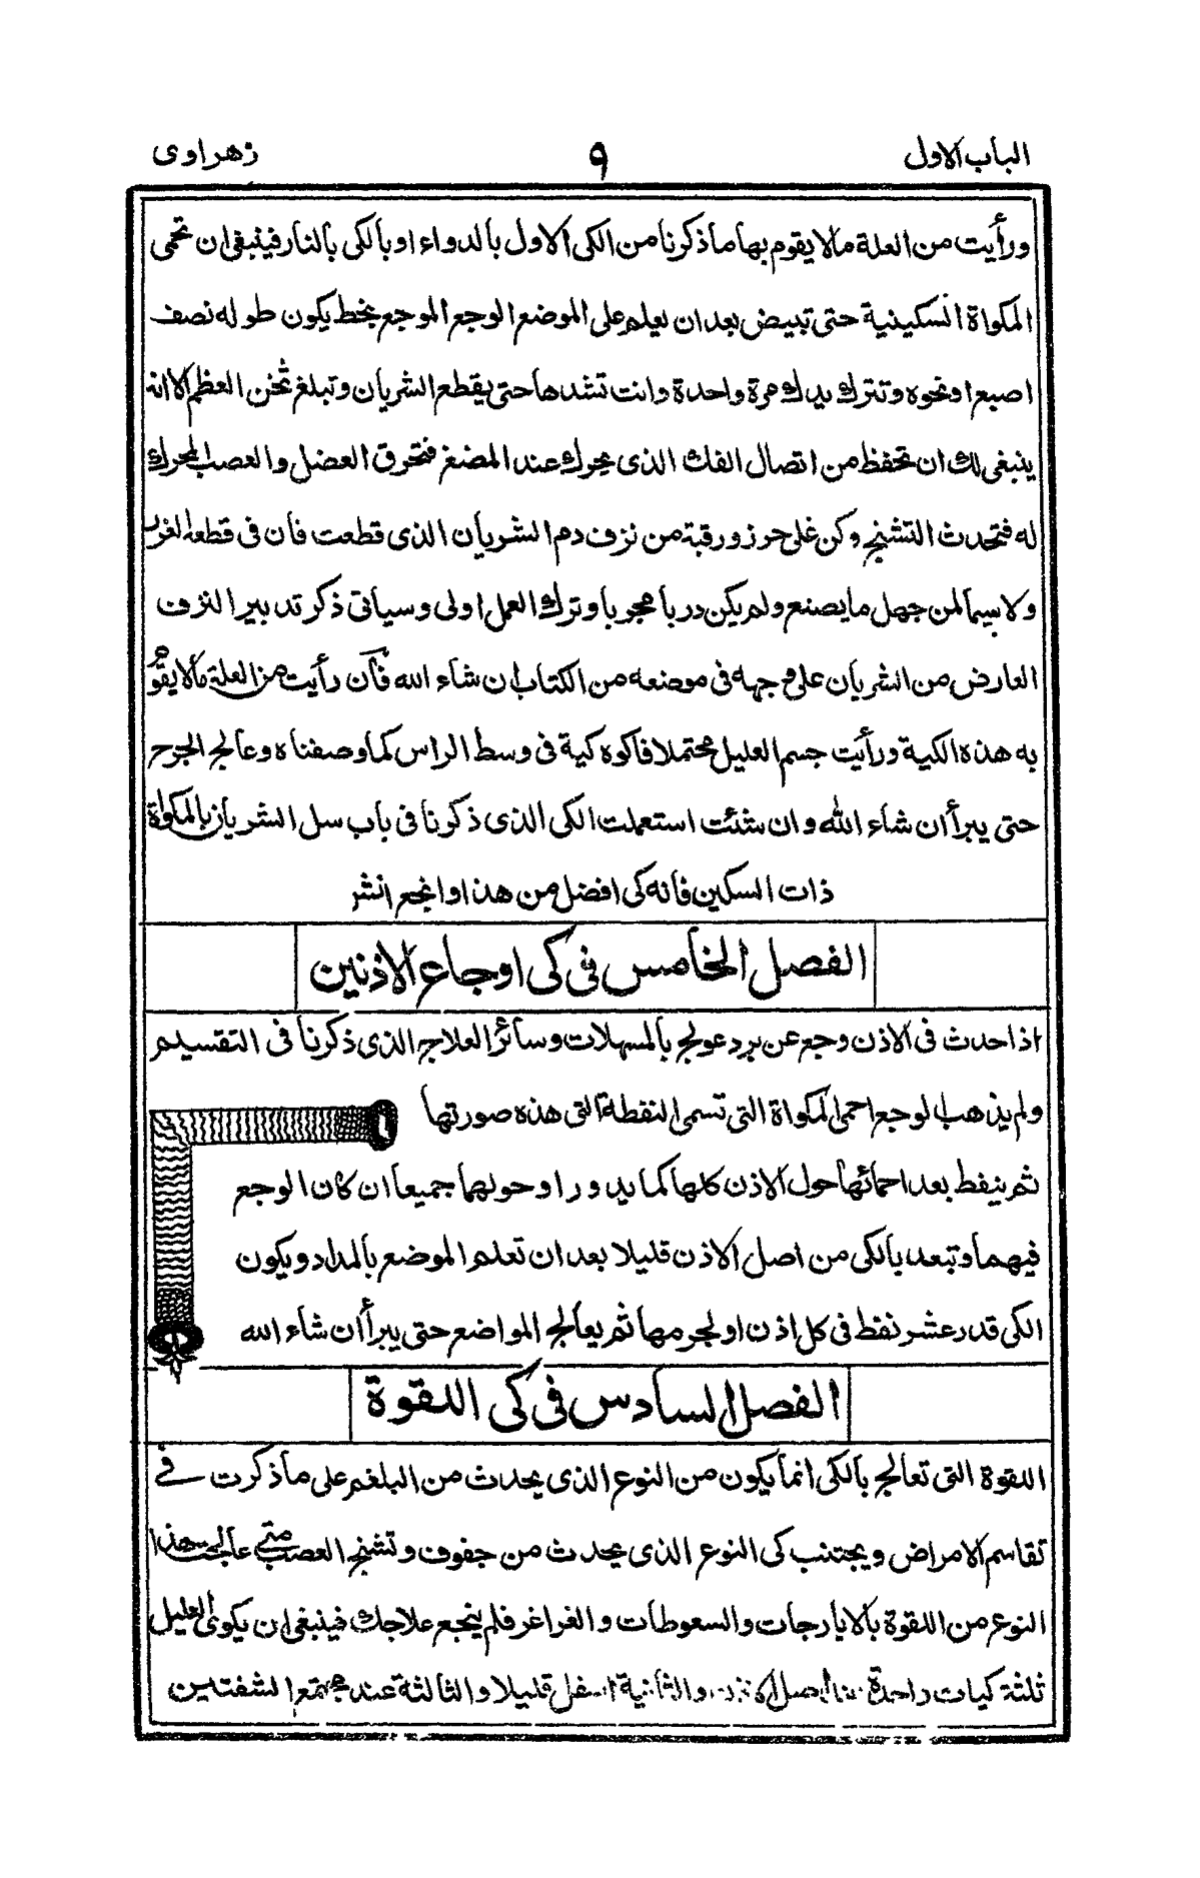 الباب الاول
٩
زهراوى
ورأيت من العلة مالا يقوم بها ما ذكرنا من الكى الاول بالدواء او بالكى بالنار فينبغى ان تحمى
المكواة السكينية حتى تبيض بعد ان يعلم على الموضع الوجع الموجع بخط يكون طوله نصف
اصبع او نحوه وتترك يدك مرة واحدة وانت تشدها حتى يقطع الشريان وتبلغ ثخن العظم الا انه
ينبغى لك ان تحفظ من اتصال الفك الذى يحرك عند المضغ فتحرق العضل والعصب المحرك
له فتحدث التشنج وكن على حرز ورقبة من نزف دم الشريان الذى قطعت فان فى قطعه الغرر
ولا سيما لمن جهل ما يصنع ولم يكن دربا مجربا وترك العمل اولى وسياتى ذكر تدبير النزف
العارض من الشريان على وجهه فى موضعه من الكتاب ان شاء الله فآن رأيت من العلة مالا يقوم
به هذه الكية ورأيت جسم العليل محتملا فاكوه كية فى وسط الراس كما وصفناه وعالج الجرح
حتى يبرأ ان شاء الله وان شئت استعملت الكى الذى ذكرنا فى باب سل الشريان بالمكواة
ذات السكين فانه كى افضل من هذا او انجع انشر
الفصل الخامس فى كى اوجاع الاذنين
اذا حدث فى الاذن وجع عن برد عولج بالمسهلات وسائر العلاج الذى ذكرنا فى التقسيم
ولم يذهب الوجع احمى المكواة التى تسمى النقطة التى هذه صورتها
ثم ينقط بعد احمائها حول الاذن كلها كما يدور او حولهما جميعا ان كان الوجع
فيهما وتبعد بالكى من اصل الاذن قليلا بعد ان تعلم الموضع بالمداد ويكون
الكى قدر عشر نقط فى كل اذن او لجرمها ثم يعالج المواضع حتى يبرأ ان شاء الله
الفصل السادس فى كى اللقوة
اللقوة التى تعالج بالكى انما يكون من النوع الذى يحدث من البلغم على ما ذكرت فى
تقاسم الامراض ويجتنب كى النوع الذى يحدث من جفوف وتشنج العصب متى عالجت هذا
النوع من اللقوة بالايارجات والسعوطات والغراغر فلم ينجع علاجك فينبغى ان يكوى العليل
ثلثة كيات واحدة اصل الاذن والثانية اسفل قليلا والثالثة عند مجتمع الشفتين